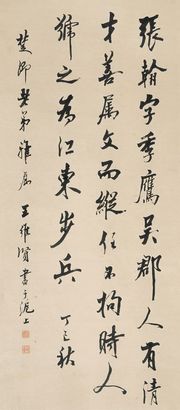 張翰字季鷹吳郡人有清
才善属文而縱任不拘時人
號之為江東步兵 丁巳秋
卿老弟雅属 王維賢書于滬上